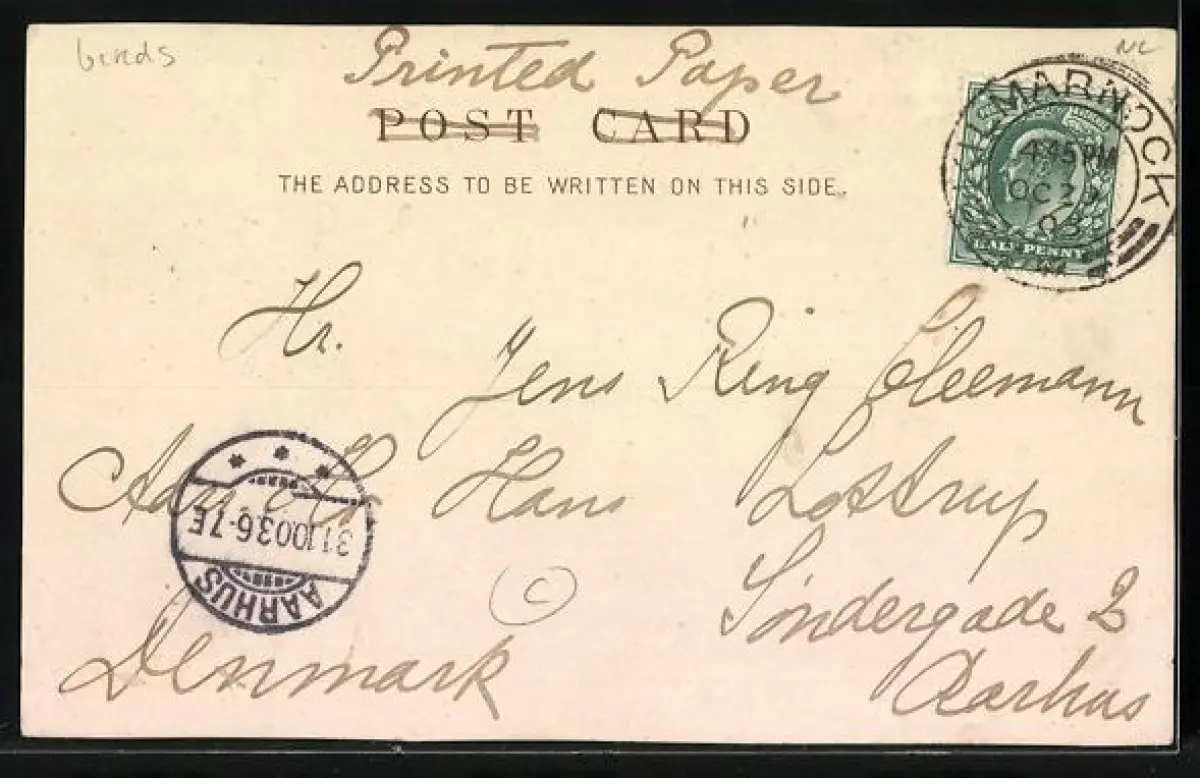 birds
NL
Printed Paper
POST CARD
THE ADDRESS TO BE WRITTEN ON THIS SIDE.
KILMARNOCK
4 45 PM
OC 2
03
HALF PENNY
Hr.
Jens Ring Cleemann
Hans Lottrup
Söndergade 2
Aarhus
Denmark
C
31.10.03 6-7 E
AARHUS